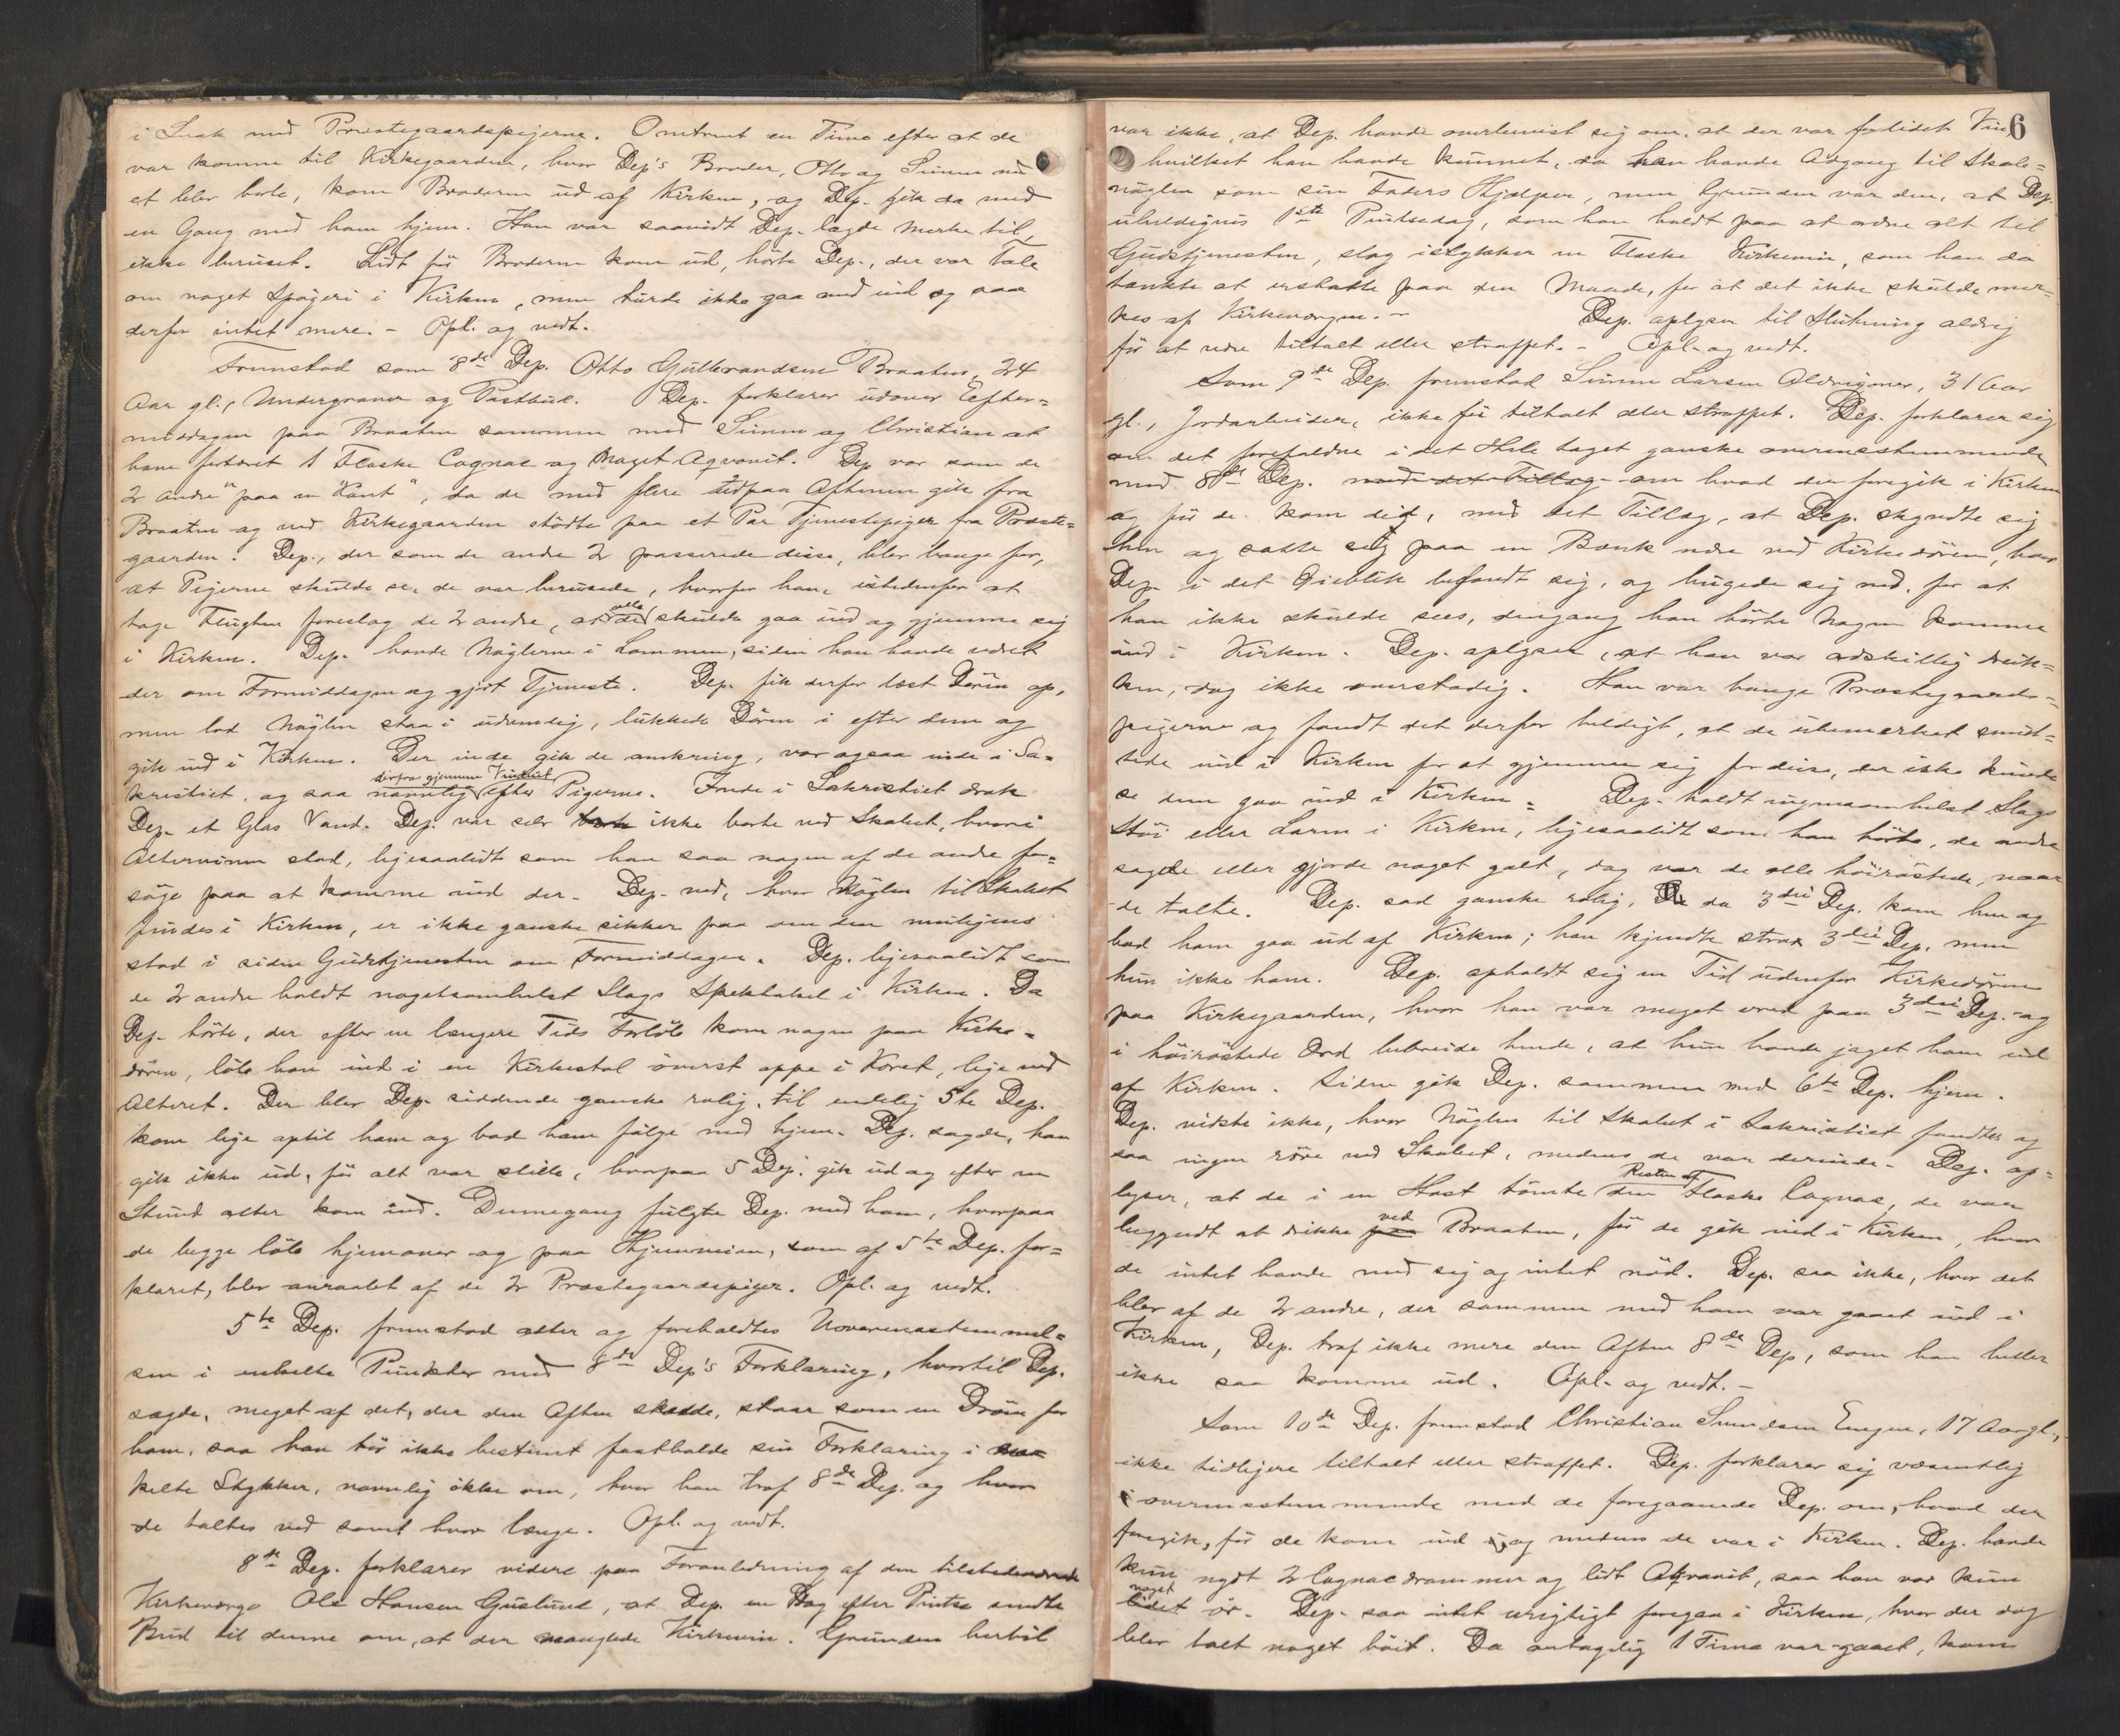 i Snak med Præstegaardspigerne. Omtrent en Time efter at de
var komne til Kirkegaarden, hvor Dep's Broder, Otto og Simen med
et blev borte, kom Broderen ud af Kirken, og Dep. gik da med
en Gang med ham hjem. Han var saavidt Dep. lagde Merke til,
ikke beruset. Lidt før Broderen kom ud, hørte Dep., der var Tale
om noget Spøgeri i Kirken, men turde ikke gaa med ind og saa
derfor intet mere. - Opl. og vedt.
Fremstod som 8de Dep. Otto Gulbrandsen Braaten, 24
Aar gl., Undergraver og Postbud. Dep. forklarer udover Efter=
middagen paa Braaten sammen med Simen og Christian at
have fortæret 1 Flaske Cognac og noget Aqvavit. Dep var som de
2 andre "paa en Kant", da de med flere tid paa Aftenen gik fra
Braaten og ved Kirkegaarden stødte paa et Par Tjenestepiger fra Præste=
gaarden. Dep., der som de andre 2 passerede disse, blev bange for,
at Pigerne skulde se, de var berusede, hvorfor han, istedenfor at
tage Flugten foreslog de 2 andre, at de alle skulde gaa ind og gjemme sig
i Kirken. Dep. havde Nøglerne i Lommen, siden han havde været
der om Formiddagen og gjort Tjeneste. Dep. fik derfor læst Døren op,
men lod Nøglen staa i udvendig, lukkede Døren i efter dem og
gik ind i Kirken. Der inde gik de omkring, var ogsaa inde i Sa=
kristiet, og saa navnlig derfra gjennem Vinduet efter Pigerne. Inde i Sakristiet drak
Dep. et Glas Vand. Dep. var selv ikke borte ved Skabet, hvori
Altervinen stod, ligesaalidt som han saa nogen af de andre for=
søge paa at komme ind der. Dep. ved, hvor Nøglen til Skabet
findes i Kirken, er ikke ganske sikker paa om den muligens
stod i siden Gudstjenesten om Formiddagen. Dep. ligesaalidt som
de 2 andre holdt nogetsomhelst Slags Spektakel i Kirken. Da
Dep. hørte, der efter en længere Tids Forløb kom nogen paa Kirke=
døren, løb han ind i en Kirkestol øverst oppe i Koret, lige ved
Alteret. Der blev Dep. siddende ganske rolig, til endelig 5te Dep.
kom lige optil ham og bad ham følge med hjem. Dep. sagde, han
gik ikke ud, før alt var stille, hvorpaa 5 Dep. gik ud og efter en
Stund atter kom ind. Dennegang fulgte Dep. med ham, hvorpaa
de begge løb hjemover og paa Hjemveien, som af 5te Dep. for=
klaret, blev anraabt af de 2 Præstegaardspiger. Opl. og vedt.
5te Dep. fremstod atter og foreholdtes Uoverensstemmel=
sen i enkelte Punkter med 8de Dep's Forklaring, hvortil Dep.
sagde, meget af det, der den Aften skedde, staar som en Drøm for
ham, saa han tør ikke bestemt fastholde sin Forklaring i
kelte Stykker, navnlig ikke om, hvor han traf 8de Dep. og hvor
de taltes ved samt hvor længe. Opl. og vedt.
8de Dep. forklarer videre paa Foranledning af den tilstedeværende
Kirkeværge Ole Hansen Guslund, at Dep. en Dag efter Pintse sendte
Bud til denne om, at der manglede Kirkevin. Grunden hertil
6
var ikke, at Dep. havde overbevist sig om, at der var forlidet Vin,
hvilket han havde kunnet, da han havde Adgang til Skabs=
nøglen som sin Faders Hjælper, men Grunden var den, at Dep.
uheldigvis 1ste Pintsedag, som han holdt paa at ordne alt til
Gudstjenesten, slog istykker en Flaske Kirkevin, som han da
tænkte at erstatte paa den Maade, for at det ikke skulde mer=
kes af Kirkeværgen. - Dep. oplyser til Slutning aldrig
før at være tiltalt eller straffet. - Opl. og vedt.
Som 9de Dep. fremstod Simen Larsen Oldrigmoe, 31 Aar
gl., Jordarbeider, ikke før tiltalt eller straffet. Dep. forklarer sig
om det forefaldne i det Hele taget ganske overensstemmende
med 8de Dep. med det Tillæg om hvad der foregik i Kirken
og før de kom did, med det Tillæg, at Dep. skyndte sig
hen og satte sig paa en Bænk nede ved Kirkedøren, hvor
Dep. i det Øieblik befandt sig, og bugede sig ned, for at
han ikke skulde sees, dengang han hørte Nogen komme
ind i Kirken. Dep. oplyser, at han var adskillig druk=
ken, dog ikke overstadig. Han var bange Præstegaards=
pigerne og fandt det derfor heldigt, at de ubemærket smut=
tede ind i Kirken for at gjemme sig for disse, der ikke kunde
se dem gaa ind i Kirken. Dep. holdt ingensomhelst Slags
Støi eller Larm i Kirken, ligesaalidt som han hørte, de andre
sagde eller gjorde noget galt, dog var de alle høirøstede, naar
de talte. Dep. sad ganske rolig, da 3die Dep. kom hen og
bad ham gaa ud af Kirken; han kjendte strax 3die Dep. men
hun ikke ham. Dep. opholdt sig en Tid udenfor Kirkedøren
paa Kirkegaarden, hvor han var meget vred paa 3die Dep. og
i høirøstede Ord bebreide hende, at hun havde jaget ham ud
af Kirken. Siden gik Dep. sammen med 6te Dep. hjem.
Dep. vidste ikke, hvor Nøglen til Skabet i Sakristiet fandtes og
saa ingen røre ved Skabet, medens de var derinde. - Dep. op=
lyser, at de i en Hast tømte Resten af den Flaske Cognac, de var
begyndt at drikke ved Braaten, før de gik ind i Kirken, hvor
de intet havde med sig og intet nød. Dep. saa ikke, hvor det
blev af de 2 andre, der sammen med ham var gaaet ind i
Kirken, Dep. traf ikke mere den Aften 8de Dep, som han heller
ikke saa komme ud. Opl. og vedt. -
Som 10de Dep. fremstod Christian Svendsen Engen, 17 Aar gl.,
ikke tidligere tiltalt eller straffet. Dep. forklarer sig væsentlig
overensstemmende med de foregaaende Dep. om, hvad der
foregik, før de kom ind i, og medens de var i Kirken. Dep. havde
kun nydt 2 Cognacdrammer og lidt Akvavit, saa han var kun
noget ør. Dep. saa intet urigtigt foregaa i Kirken, hvor der dog
blev talt noget høit. Da antagelig 1 Time var gaaet, kom